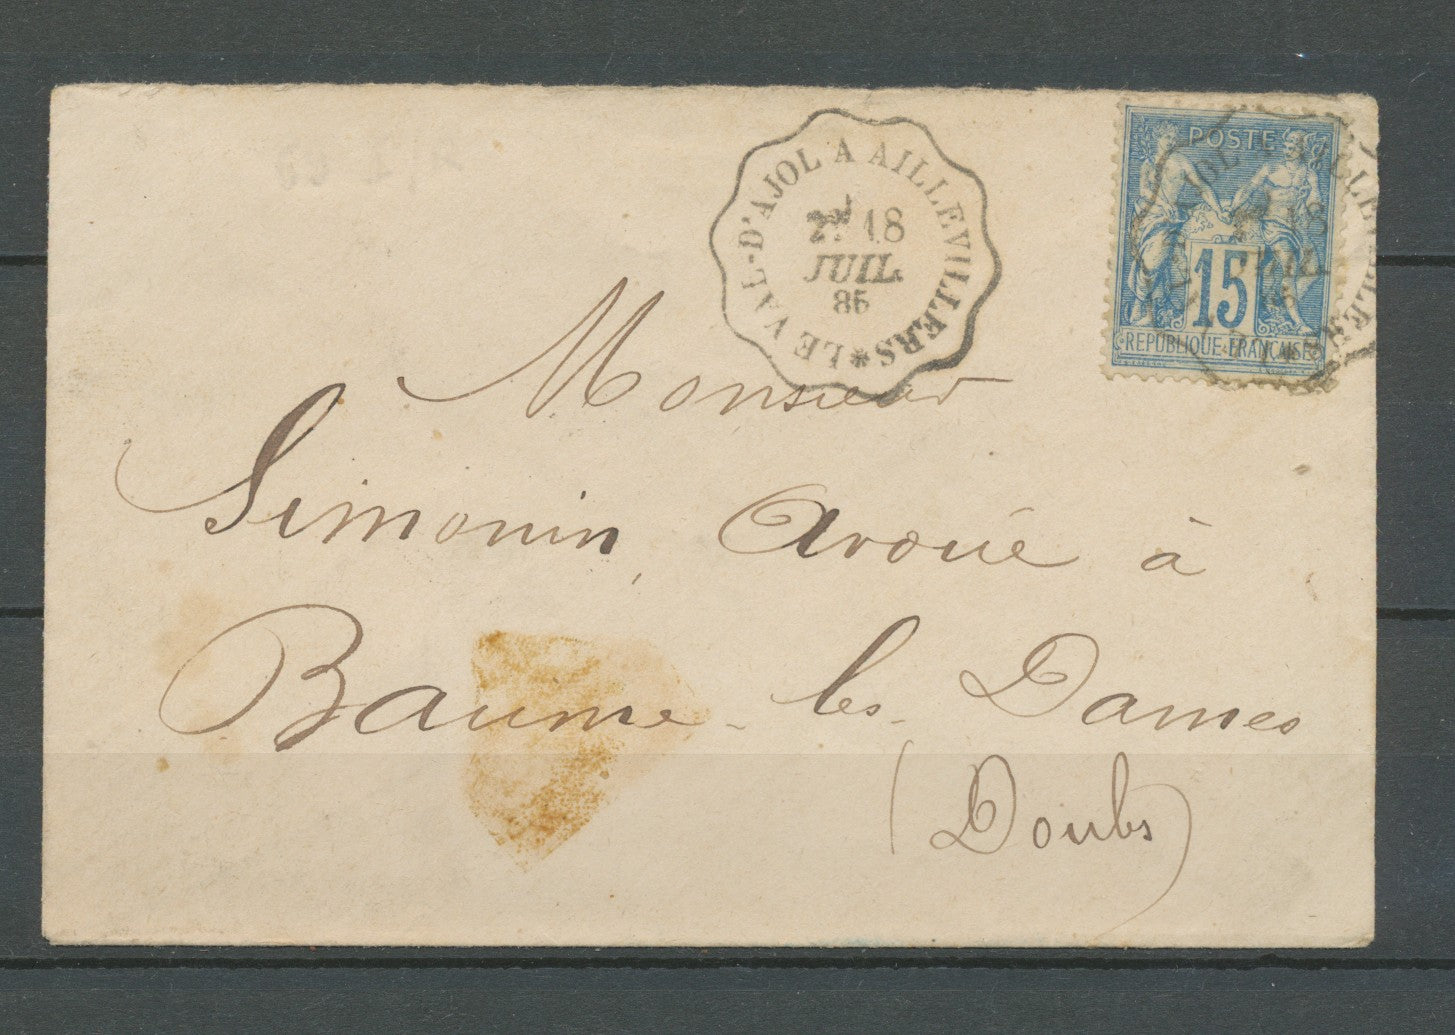 LE VAL-D'AJOL A AILLEVILLERS *
18
JUIL.
85
POSTE
15
REPUBLIQUE FRANÇAISE
Monsieur
Simonin, Avoué à
Baume-les-Dames
(Doubs)